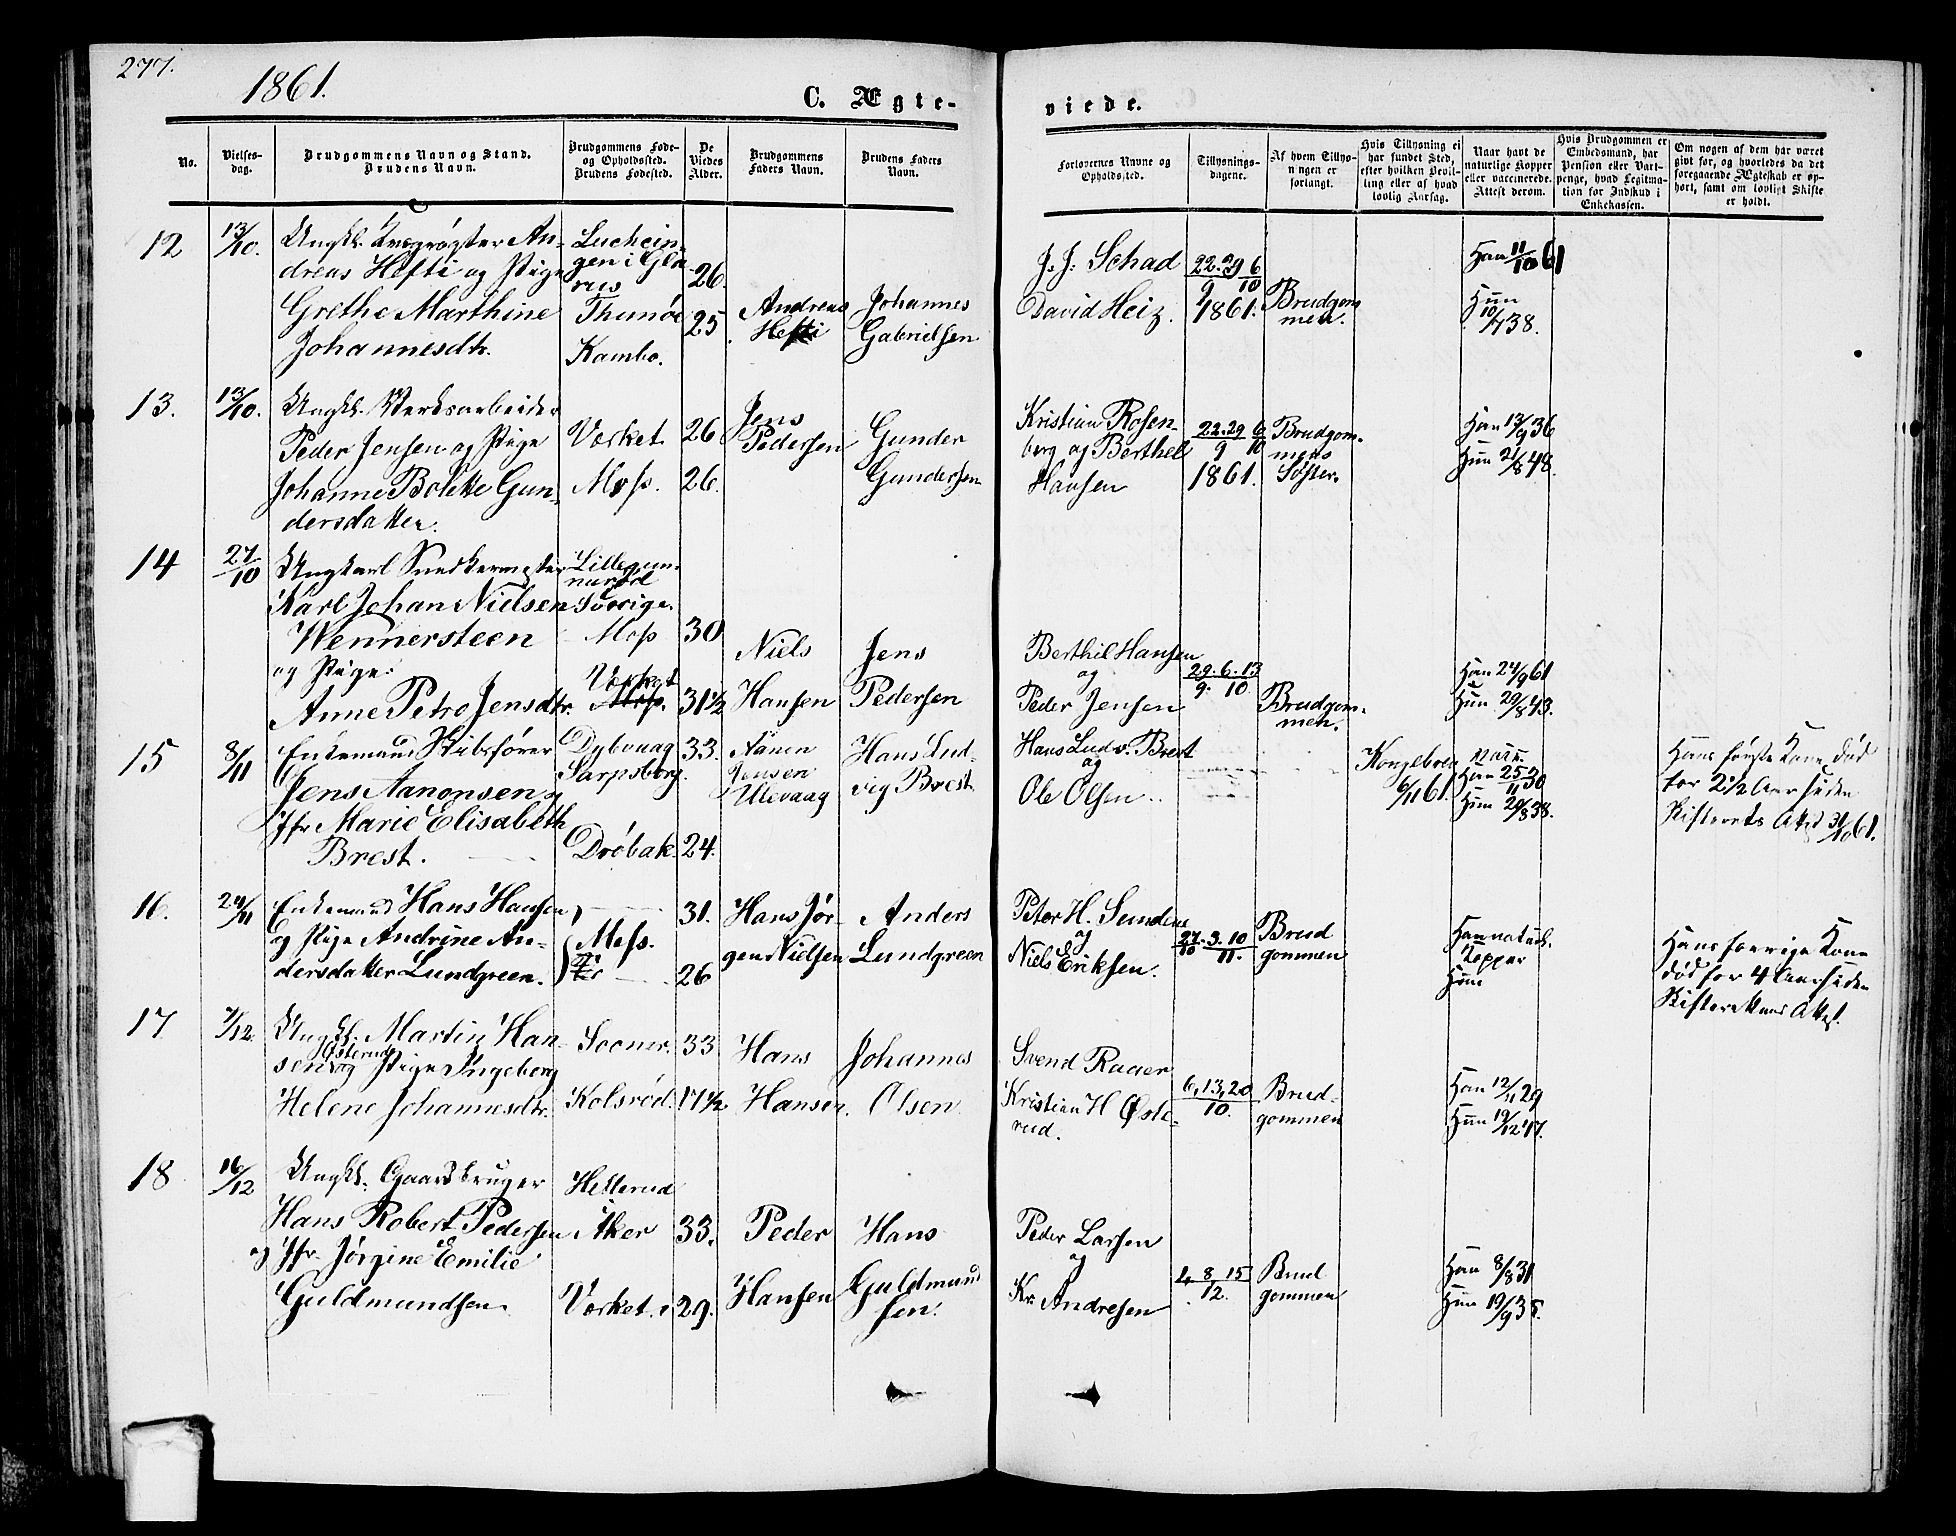 277.
1861.
C. Ægte-
viede.
No.
Vielses-
dag.
Brudgommens Navn og Stand.
Brudens Navn.
Brudgommens Føde-
og Opholdssted.
Brudens Fødested.
De
Viedes
Alder.
Brudgommens
Faders Navn.
Brudens Faders
Navn.
Forlovernes Navne og
Opholdssted.
Tillysnings-
dagene.
Af hvem Tillys-
ningen er
forlangt.
Hvis Tillysning ei
har fundet Sted,
efter hvilken Bevil-
ling eller af hvad
lovlig Aarsag.
Naar havt de
naturlige Kopper
eller vaccinerede.
Attest derom.
Hvis Brudgommen er
Embedsmand, har
Pension eller Vart-
penge, hvad Legitima-
tion for Indskud i
Enkekassen.
Om nogen af dem har været
gift før, og hvorledes da det
foregaaende Ægteskab er op-
hørt, samt om lovligt Skifte
er holdt.
12
13/10.
Ungk. Kvægrøgter An-
dreas Hefti og Pige
Grethe Marthine
Johannesdtr.
Luchsin-
gen i Gla
rus
Thunøe
Kambo.
26.
25
Andreas
Hefti
Johannes
Gabrielsen
J. J. Schad
David Heiz.
22. 29 6
9 10
1861.
Brudgom
men.
Han 11/10 61
Hun
10/7 38.
13.
13/10.
Ungk. Verksarbeider
Peder Jensen og Pige
Johanne Bolette Gun-
dersdatter.
Værket
Moss.
26
26.
Jens
Pedersen
Gunder
Gundersen
Kristian Rosen-
berg og Berthel
Hansen
22. 29 6
9 10
1861.
Brudgom-
mens
Søster.
Han 13/9 36
Hun 21/8 48.
14
27/10
Ungkarl Snedkermester
Karl Johan Nielsen
Wennersteen
og Pige:
Anne Petro Jensdtr.
Lillegun-
narød
Sverige.
Moss
Værket
Moss.
30
31 1/2
Niels
Hansen
Jens
Pedersen
Berthil Hansen
og
Peder Jensen
29. 6. 13
9. 10
Brudgom-
men.
Han 24/9 61
Hun 29/8 43.
15
8/11
Enkemand Skibsfører
Jens Aanonsen og
Jfr Marie Elisabeth
Brest.
Dybvaag
Sarpsborg.
Drøbak.
33.
24.
Aanen
Jensen
Ulevaag
Hans Lud-
vig Brest
Hans Ludv. Brest
og
Ole Olsen
Kongebrev
6/11 61.
vacc.
Han 25/11 30
Hun 29/8 38.
Hans første Kone død
for 2 1/2 Aar siden
Skifterets Attest 31/10 61.
16.
24/11
Enkemand Hans Hansen
og Pige Andrine An-
dersdatter Lundgreen.
Moss.
31.
26
Hans Jør-
gen Nielsen
Anders
Lundgreen
Peter H. Sundene
og
Niels Eriksen.
27. 3. 10
10 11.
Brud
gommen
Han naturl.
Kopper
Hun
Hans forrige Kone
død for 4 Aar siden
Skifterettens Attest.
17
7/12.
Ungk. Martin Han-
sen Østerud
og Pige Ingeborg
Helene Johannesdtr.
Sooner.
Kolsrød.
33
17 1/2
Hans
Hansen.
Johannes
Olsen
Svend Raaer
Kristian H Øste-
rud.
6, 13, 20
10.
Brud-
gommen
Han 12/11 29
Hun 19/12 47.
18
16/12
Ungk. Gaardbruger
Hans Robert Pedersen
og Jfr. Jørgine Emilie
Guldmundsen.
Hellerud
i Aker
Værket.
33.
29.
Peder
Hansen
Hans
Guldmund
sen.
Peder Larsen
og
Kr. Andresen
1, 8, 15
12.
Brud
gommen
Han 8/8 31
Hun 19/9 35.